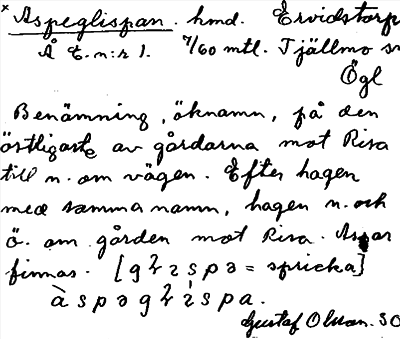 × Aspeglispan. hmd. Ervidstorp
Å E. n:r 1. 7/60 mtl. Tjällmo sn
Ögl
Benämning, öknamn, på den
östligaste av gårdarna mot Risa
till n. om vägen. Efter hagen
med samma namn, hagen n. och
ö. om gården mot Risa. Aspar
finnas. [ = spricka]
Gustaf Olsson. 30